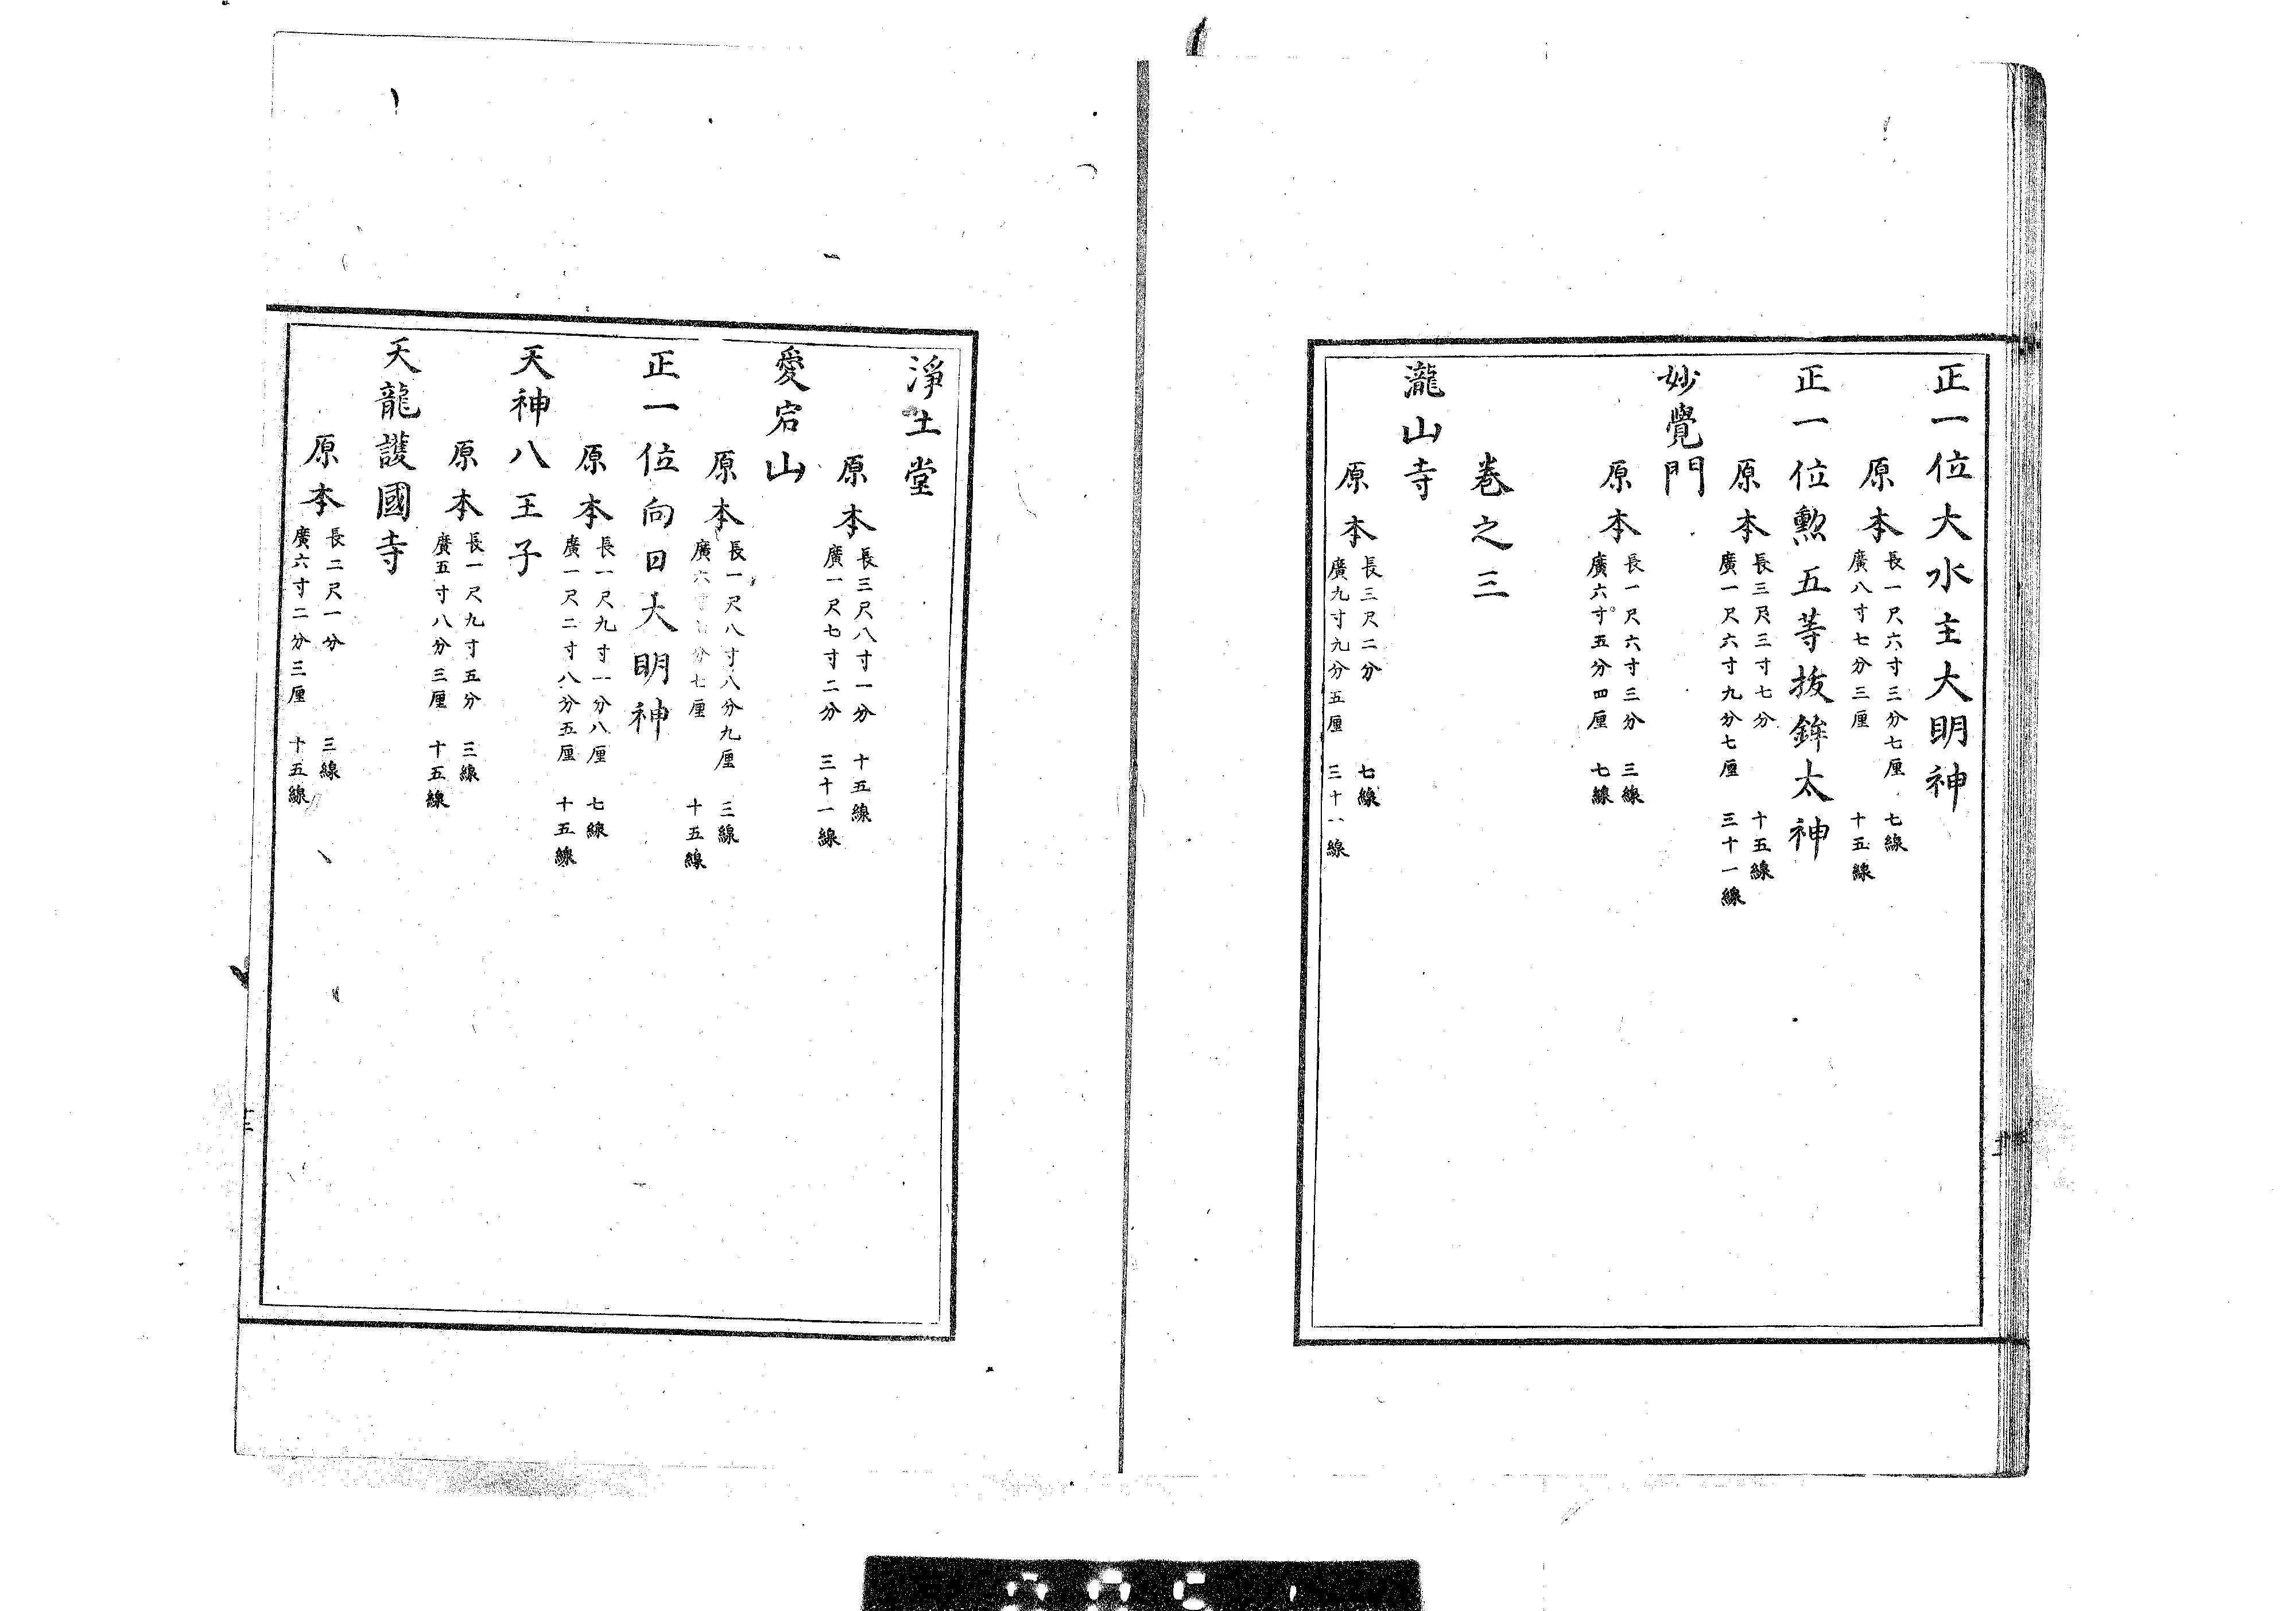 正一位大水主大明神
原本
長一尺六寸三分七厘 七線
廣八寸七分三厘 十五線
正一位勲五等抜鉾太神
原本
長三尺三寸七分 十五線
廣一尺六寸九分七厘 三十一線
妙覺門
原本
長一尺六寸三分 三線
廣六寸五分四厘 七線
卷之三
瀧山寺
原本
長三尺二分 七線
廣九寸九分五厘 三十一線
淨土堂
原本
長三尺八寸一分 十五線
廣一尺七寸二分 三十一線
愛宕山
原本
長一尺八寸八分九厘 三線
廣六寸 分七厘 十五線
正一位向日大明神
原本
長一尺九寸一分八厘 七線
廣一尺二寸八分五厘 十五線
天神八王子
原本
長一尺九寸五分 三線
廣五寸八分三厘 十五線
天龍護國寺
原本
長二尺一分 三線
廣六寸二分三厘 十五線